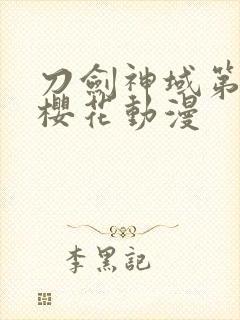 刀劍神域第
櫻花動漫
李黑記